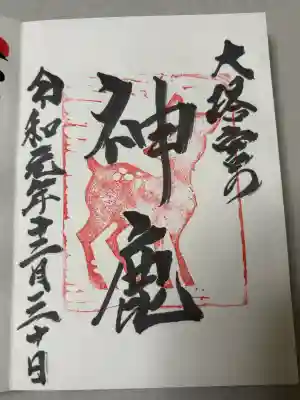 大塔宮の
神鹿
令和元年十二月三十日